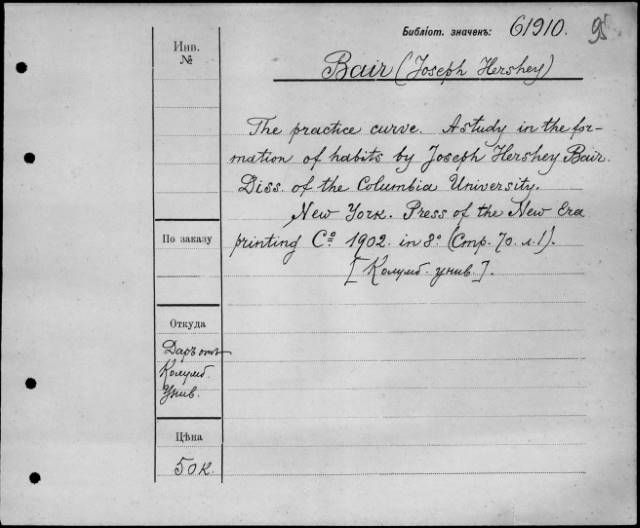 Библіот. значекъ: 61910. 95
Инв.
№
Bair (Joseph Hershey)
The practice curve. A study in the for-
mation of habits by Joseph Hershey Bair.
Diss. of the Columbia University.
New York. Press of the New Era
printing Cº 1902. in 8.º (Стр. 70. л. 1).
[Колумб. унив.].
По заказу
Откуда
Даръ отъ
Колумб.
Унив.
Цѣна
50 к.